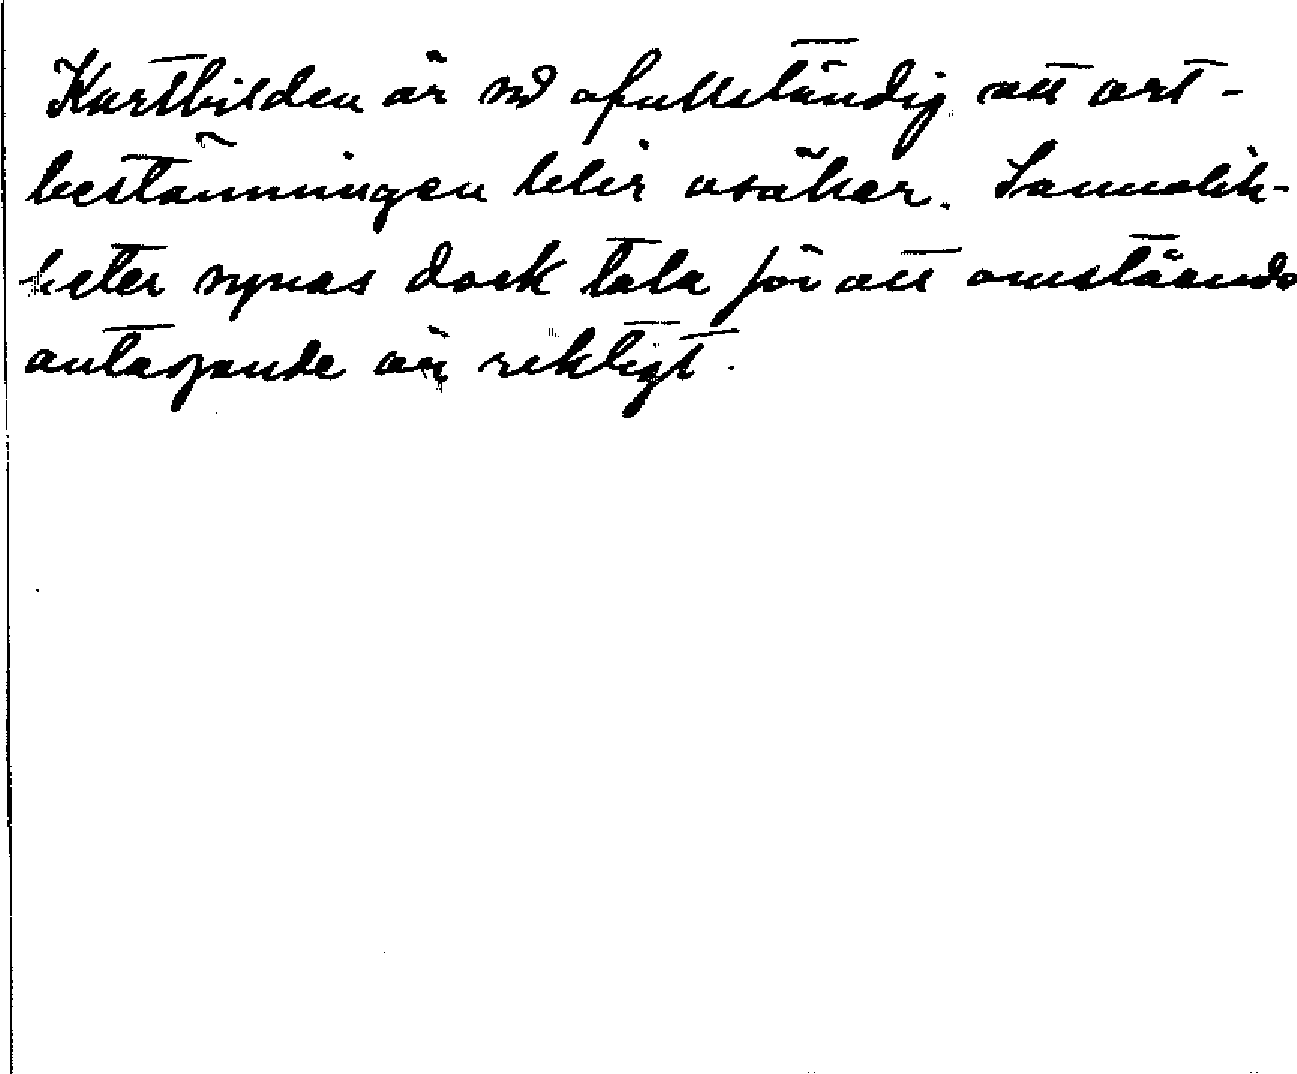 Kartbilden är så ofullständig att ort-
bestämningen blir osäker. Sannolik-
heter synas dock tala för att omstående
antagande är riktigt.